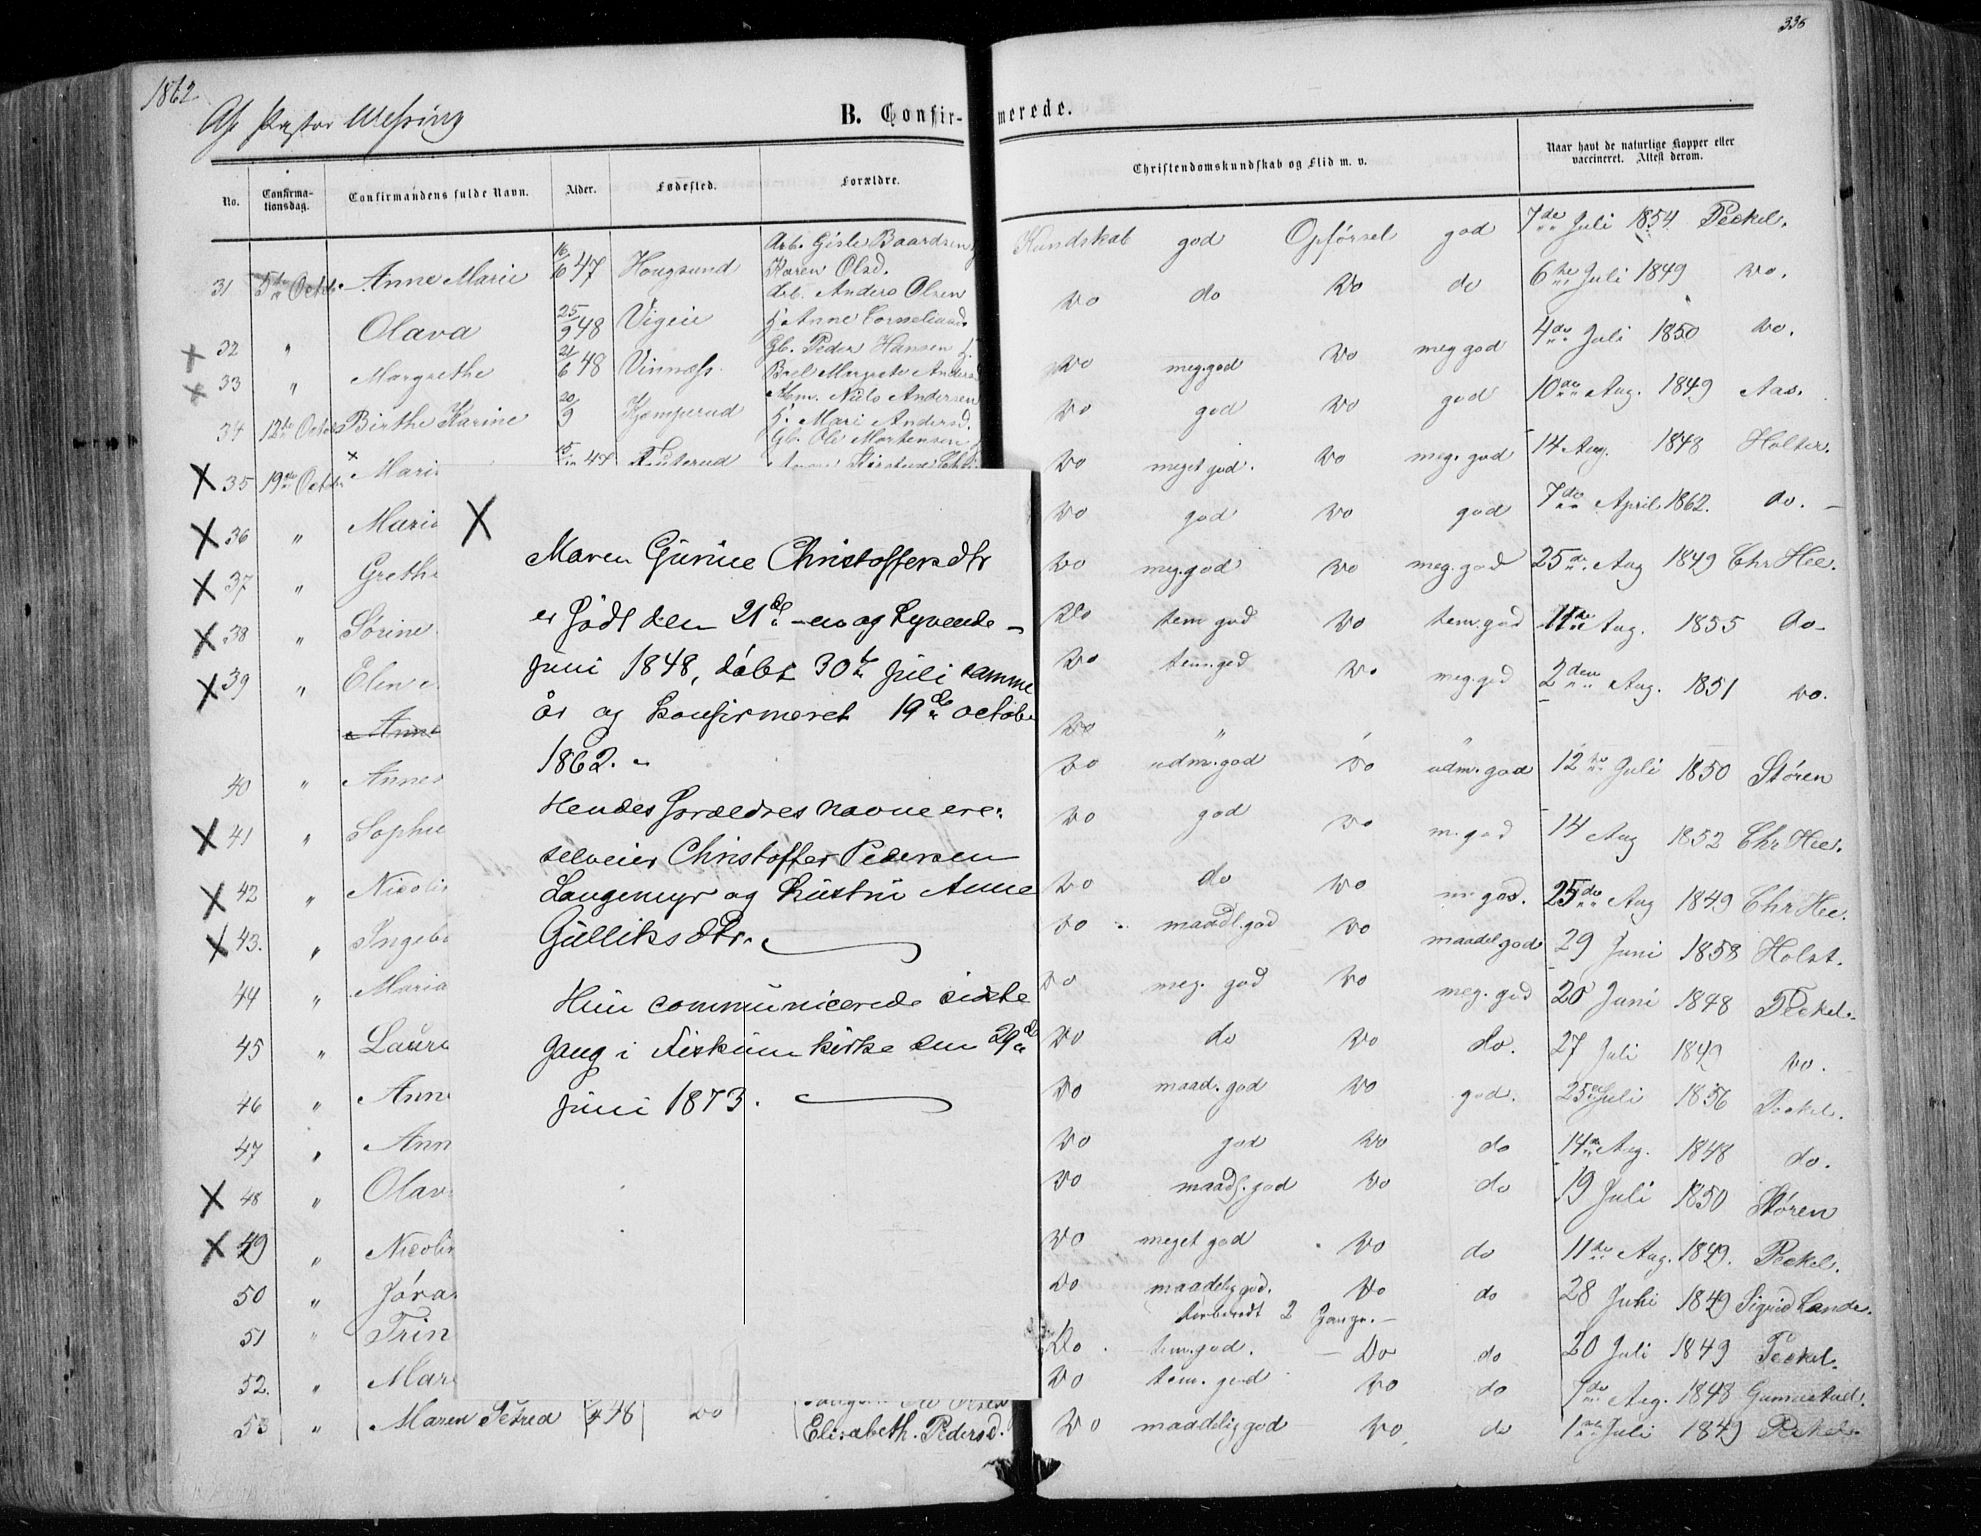 1862
335
B. Confir-merede.
No.
Confirma-
tionsdag.
Confirmandens fulde Navn.
Alder.
Fødested.
Forældre.
Christendomskundskab og Flid m. v.
Naar havt de naturlige Kopper eller
vaccineret. Attest derom.
Arb. Gisle Baardsen
31 5te Octbr. Anne Marie 16/6 47 Hougsund Karen Olsd. Kundskab god Opførsel god 7de Juli 1854 Peckel.
Arb. Anders Olsen
32 " Olava 25/9 48 Vigeie Anne Corneliusd. do do do do 6te Juli 1849 do.
Gb. Peder Hansen
33 " Margrethe 21/6 48 Vinnæss. Margrete Andersd do meg.god do meg god 4de Juli 1850 do.
Niels Andersen
34 12te Octbr Birthe Karine 20/9 Kjemperud Mari Andersd. do god do god 10de Aug. 1849 Aas.
Gb. Ole Mortensen
35 19de Octbr. Mari 47 do meget god. do meg. god 14 Aug. 1848 Holter.
36 " Mari do god do god 7de April 1862. do. -
37 " Grethe do meg.god do meg.god 25de Aug 1849 Chr Hee.
38 " Sørine do tem god do tem.god 11te Aug. 1855 do-
39 " Elen do tem.god do meg.god 2den Aug. 1851 do.
Anne do " "
40 " Anne do udm.god do udm.god 12te Juli 1850 Støren
41 " Sophie do god do m.god 14 Aug 1852 Chr Hee.
42 " Nicolin do do do m.god. 25de Aug 1849 Chr Hee.
43. " Ingebo do maadl.god do maadel god 29 Juni 1858 Holst.
44 " Maria do meg. god do meg. god 20 Juni 1848 Peckel.
45 " Laura do do do do. 27 Juli 1849 do.
46 " Anne do maad.god do god. 25de Juli 1856 Peckel.
47 " Ann do god do do 14de Aug. 1848 do.
48 " Olav do maadl.god do do 19 Juli 1850 Støren
49 " Nicolin do meget god do do 11te Aug. 1849. Peckel.
50 " Jóra do maadelig god. do do 28 Juli 1849 Sigrid Lande.
forberedt 2 Gange. -
51 " Trin Do tem.god. - Do do 20 Juli 1849 Peckel.
52. " Mari do tem. god do do 7de Aug. 1848
53 " Maren Petrea 48 do Elisabeth. Pedersd. do maadelig god do do 1ste Juli 1849 Peckel.
X
Maren Gurine Christoffersdtr
er født den 21de -en og tyvende -
juni 1848, døbt 30te juli samme
år og konfirmeret 19de octobe
1862. -
Hendes forældres navne ere:
selveier Christoffer Pedersen
Langemyr og hustru Anne
Gulliksdtr.
Hun communicerede sidste
gang i Fiskum kirke den 29de
juni 1873.